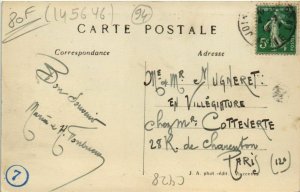 80F (145646) 94
CARTE POSTALE
Correspondance
Adresse
Bon Souvenir
Me. et Mr. MUGNERET
EN VILLÉGIATURE
chez Mr COTTEVERTE
28 R. de Charenton
PARIS (12e)
J. A. phot-édit
C428
5
7